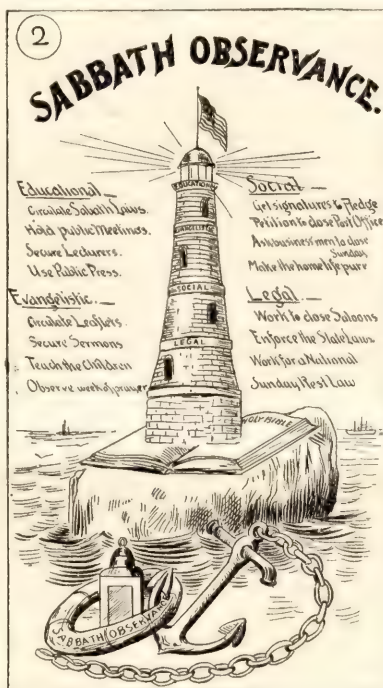 2
SABBATH OBSERVANCE.
Educational
Circulate Sabbath Laws.
Hold public Meetings.
Secure Lecturers.
Use Public Press.
Evangelistic.
Circulate Leaflets.
Secure Sermons
Teach the Children
Observe week of prayer
Social
Get signatures to Pledge
Petition to close Post Office
Ask business men to close
Sunday
Make the home life pure
Legal
Work to close Saloons
Enforce the State Laws
Work for a National
Sunday Rest Law
EDUCATIONAL
EVANGELISTIC
SOCIAL
LEGAL
HOLY BIBLE
SABBATH OBSERVAN